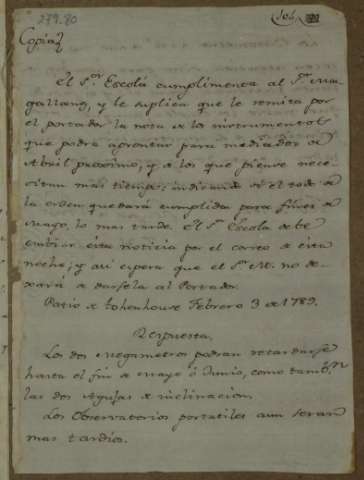 279.80
104
Copia
El S.or Escolá cumplimenta al S.r Ma-
gallang, y le suplica que le remita por
el portador la nota de los instrumentos
que podrá aprontar para mediados de
Abril proximo, y de los que piense nece-
sitan mas tiempo: indicando si el todo de
la orden quedará cumplida para fines de
Mayo, lo mas tarde. El S.r Escola debe
embiar esta noticia por el correo de esta
noche; y así espera que el S.r M. no de-
xará de darsela al Portador.
Patio de Febrero 3 de 1789.
Respuesta.
Los dos Megametros podran retardarse
hasta el fin de Mayo ó Junio, como tamb.n
las dos Agujas de inclinacion.
Los Observatorios portatiles aun seran
mas tardios.